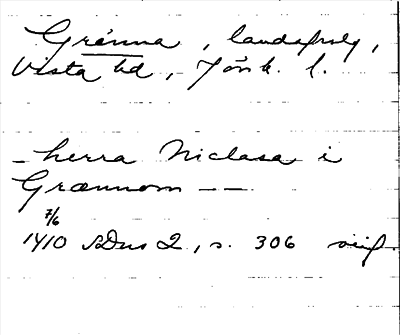 Gränna, landsförs.,
Vista hd, Jönk. l.
– herra Niclasa i
Grænnom – –
7/6
1410 SDns 2, s. 306